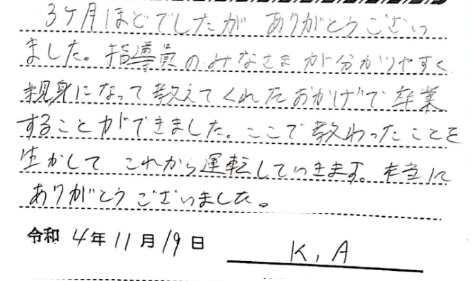 3ヶ月ほどでしたが ありがとうござい
ました。指導員のみなさまが分かりやすく
親身になって教えてくれたおかげで卒業
することができました。ここで教わったことを
生かして これから運転していきます。本当に
ありがとうございました。
令和 4年 11月 19日
K, A